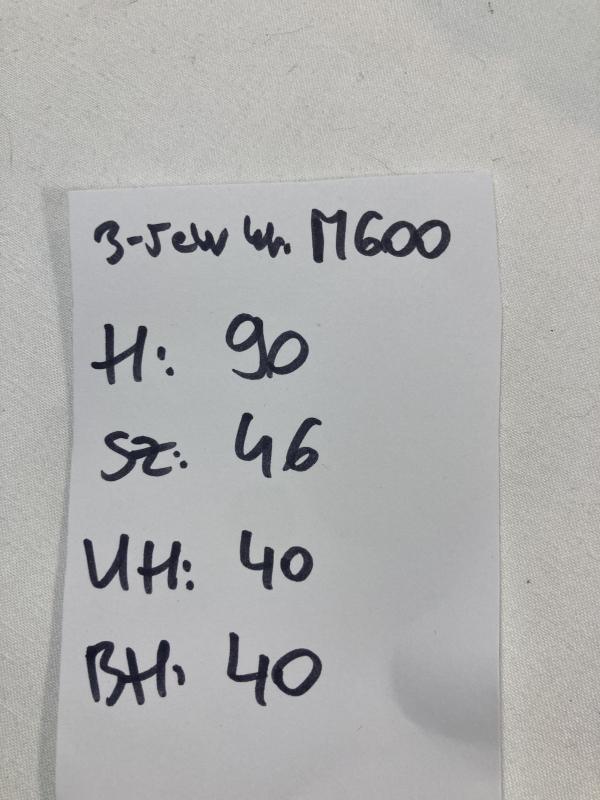 M600
H: 90
SZ: 46
UH: 40
BH: 40